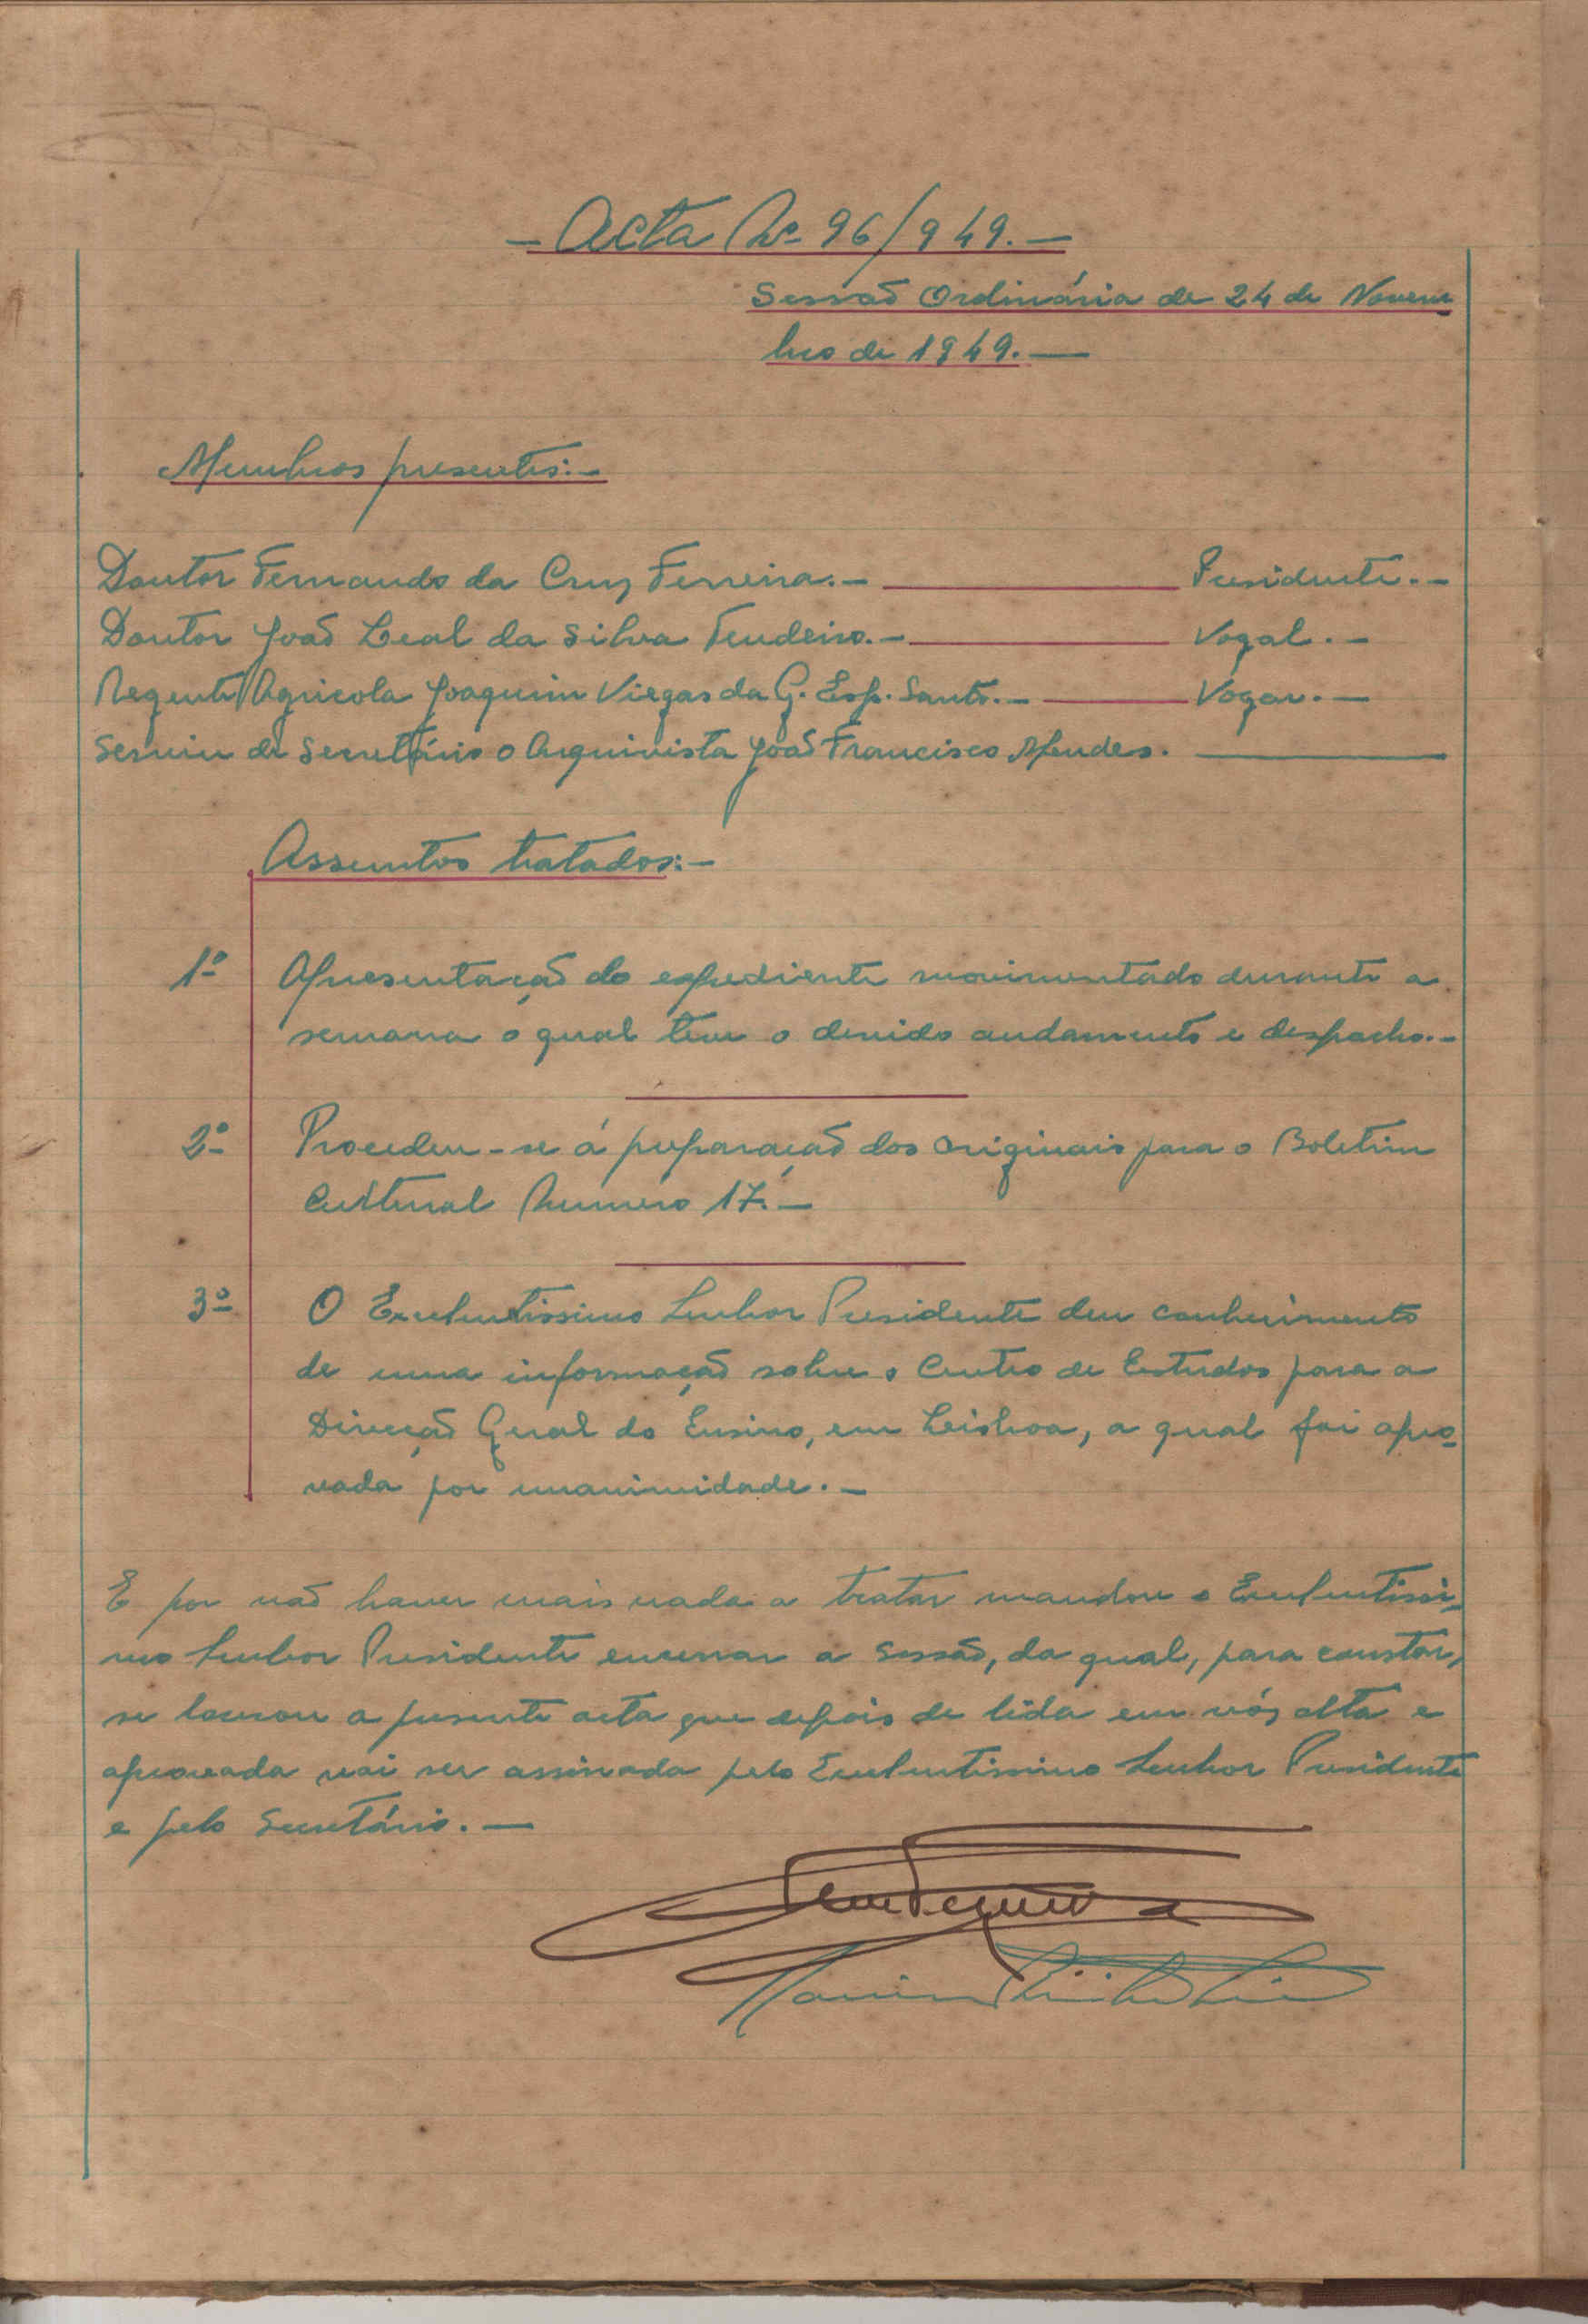 - Acta Nº 96/949. -
Sessão Ordinária de 24 de Novem
bro de 1949. -
Membros presentes: -
Doutor Fernando da Cruz Ferreira. - Presidente. -
Doutor João Leal da Silva Tendeiro. - Vogal. -
Regente Agricola Joaquim Viegas da G. Esp. Santo. - Vogar. -
Serviu de Secretário o Arquivista João Francisco Mendes.
Assuntos tratados: -
1º Apresentação do expediente movimentado durante a
semana o qual teve o devido andamento e despacho. -
2º Procedeu-se á preparação dos originais para o Boletim
Cultural Numero 17. -
3º O Excelentissimo Senhor Presidente deu conhecimento
de uma informação sobre o Centro de Estudos para a
Direcção Geral do Ensino, em Lisboa, a qual foi apro-
vada por unanimidade. -
E por não haver mais nada a tratar mandou o Excelentissi-
mo Senhor Presidente encerrar a Sessão, da qual, para constar,
se lavrou a presente acta que depois de lida em vóz alta e
aprovada vai ser assinada pelo Excelentissimo Senhor Presidente
e pelo Secretário. -